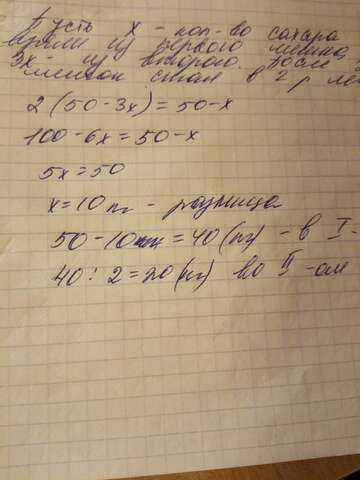 Пусть х - кол-во сахара
взяли из первого мешка,
3х - из второго. После
мешок стал в 2 р ле
2(50-3х)=50-х
100-6х=50-х
5х=50
х=10 кг - разница
50-10=40(кг) - в I-
40:2=20(кг) во II-ом